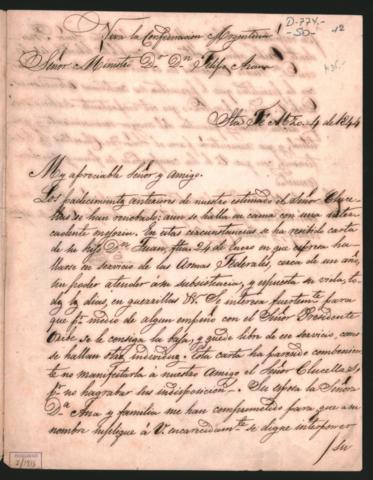 D-774.-
-50-
12
¡Viva la Confederacion Argentina!
Señor Ministro Dr. Dn. Felipe Arana
Sta. Fé Mzo. 4 de 1844
My apreciable Señor y amigo.
Los padecimientos anteriores de nuestro estimado el Señor Cluce-
llas se han renobado: aun se halla en cama con una
cadente mejoria. En estas circunstancias se ha recibido carta
de su hijo Dn. Juan, fha. 24 de Enero en que espresa ha-
llarse en servicio de las Armas Federales cerca de un año,
sin poder atender a su subsistencia, y espuesta su vida, to-
dos los dias, en guerrillas &. Se interesa fuertemte. para
que pr. medio de algun empeño con el Señor Presidente
Oribe se le consiga su baja, y quede libre de su servicio, como
se hallan otros individuos. Esta carta ha parecido combenien-
te no manifestarla á nuestro Amigo el Señor Clucellas,
pr. no hagrabar sus indisposicion. Su esposa la Señora
Da. Ana y familia me han comprometido para que a su
nombre suplique á V. encarecidamte. se digne interponer
/su